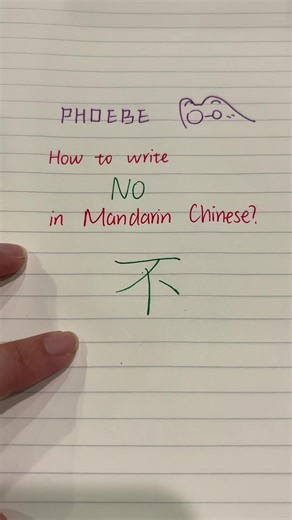 PHOEBE
How to write
NO
in Mandarin Chinese?
不